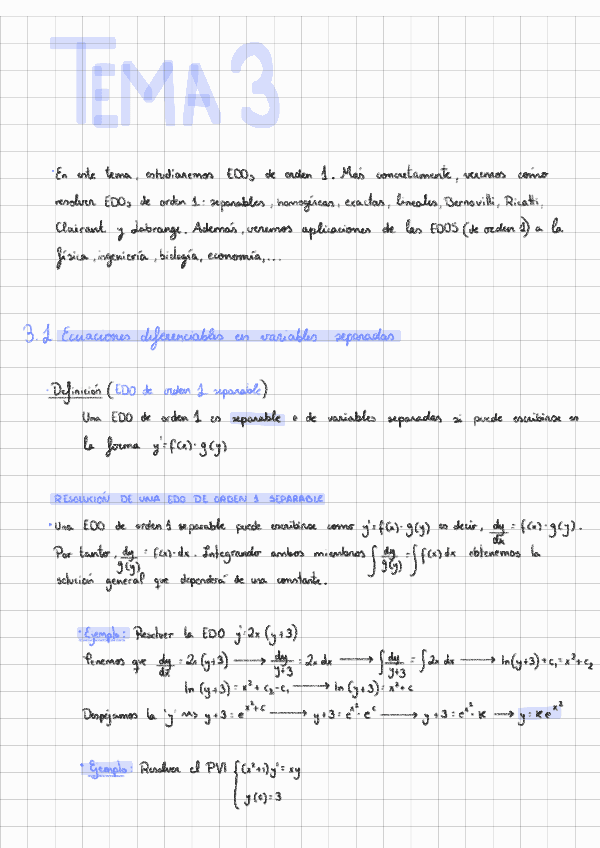 TEMA 3
· En este tema, estudiaremos EDOs de orden 1. Más concretamente, veremos como
resolver EDOs de orden 1: separables, homogéneas, exactas, lineales, Bernouilli, Ricatti,
Clairant y Labrange. Además, veremos aplicaciones de las EDOS (de orden 1) a la
física, ingeniería, biología, economía,...
3.1 Ecuaciones diferenciables en variables separadas
· Definición (EDO de orden 1 separable)
Una EDO de orden 1 es separable o de variables separadas si puede escribirse en
la forma y' = f(x)·g(y)
RESOLUCIÓN DE UNA EDO DE ORDEN 1 SEPARABLE
· Una EDO de orden 1 separable puede escribirse como y' = f(x)·g(y) es decir, dy/dx = f(x)·g(y).
Por tanto, dy/g(y) = f(x)·dx. Integrando ambos miembros ∫ dy/g(y) = ∫ f(x) dx obtenemos la
solución general que dependerá de una constante.
· Ejemplo: Resolver la EDO y' = 2x (y+3)
Tenemos que dy/dx = 2x (y+3) → dy/y+3 = 2x dx → ∫ dy/y+3 = ∫ 2x dx → ln(y+3) + c₁ = x² + c₂
ln (y+3) = x² + c₂ - c₁ → ln (y+3) = x² + c
Despejamos la "y" ⇝ y+3 = e^(x²+c) → y+3 = e^(x²) · e^c → y+3 = e^(x²) · K → y = K e^(x²)
· Ejemplo: Resolver el PVI { (x²+1) y' = xy
y(0) = 3